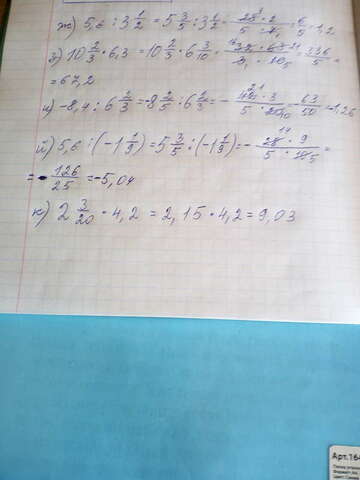 ж) 5,6 : 3 1/2 = 5 3/5 : 3 1/2 = 28 · 2 / 5 · 7 = 6/5 = 1,2
з) 10 2/3 · 6,3 = 10 2/3 · 6 3/10 = 32 · 63 21 / 3 · 10 5 = 336/5 =
= 67,2
и) -8,4 : 6 2/3 = -8 2/5 : 6 2/3 = - 42 21 · 3 / 5 · 20 10 = - 63/50 = -1,26
й) 5,6 : (-1 1/9) = 5 3/5 : (-1 1/9) = - 28 14 · 9 / 5 · 10 5 =
= - 126/25 = -5,04
к) 2 3/20 · 4,2 = 2,15 · 4,2 = 9,03
Арт.164